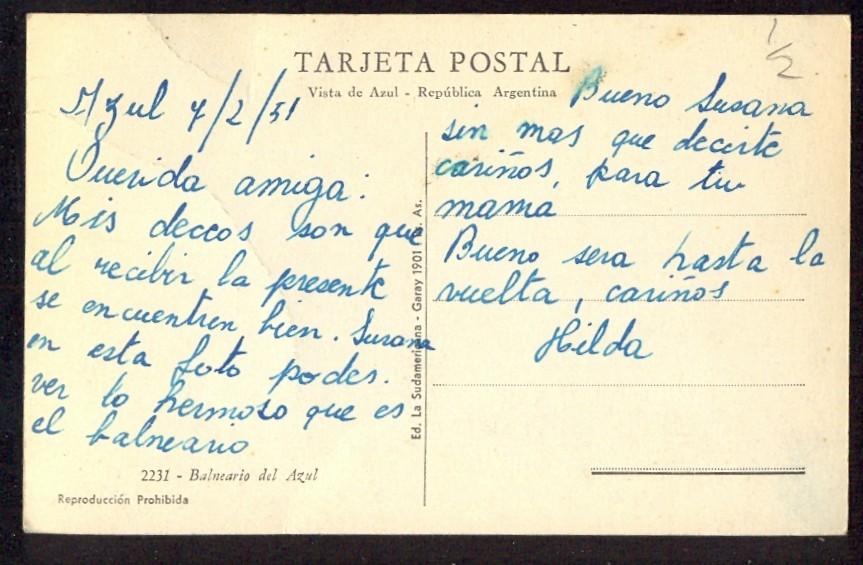 1/2
TARJETA POSTAL
Vista de Azul - República Argentina
Azul 7/2/51
Querida amiga:
Mis deceos son que
al recibir la presente
se encuentren bien. Susana
en esta foto podes.
ver lo hermoso que es
el balneario
2231 - Balneario del Azul
Reproducción Prohibida
Ed. La Sudamericana - Garay 1901 Bs. As.
Bueno Susana
sin mas que decirte
cariños, para tu
mamá
Bueno sera hasta la
vuelta, cariños
Hilda